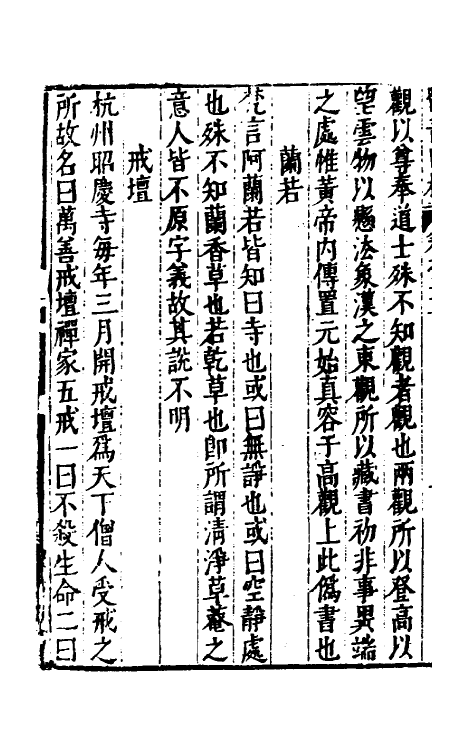 觀以尊奉道士殊不知觀者觀也兩觀所以登高以
望雲物以懸法象漢之東觀所以藏書初非事異端
之處惟黃帝內傳置元始真容于高觀上此僞書也
蘭若
梵言阿蘭若皆知曰寺也或曰無諍也或曰空靜處
也殊不知蘭香草也若乾草也卽所謂清淨草菴之
意人皆不原字義故其說不明
戒壇
杭州昭慶寺每年三月開戒壇爲天下僧人受戒之
所故名曰萬善戒壇禪家五戒一曰不殺生命二曰